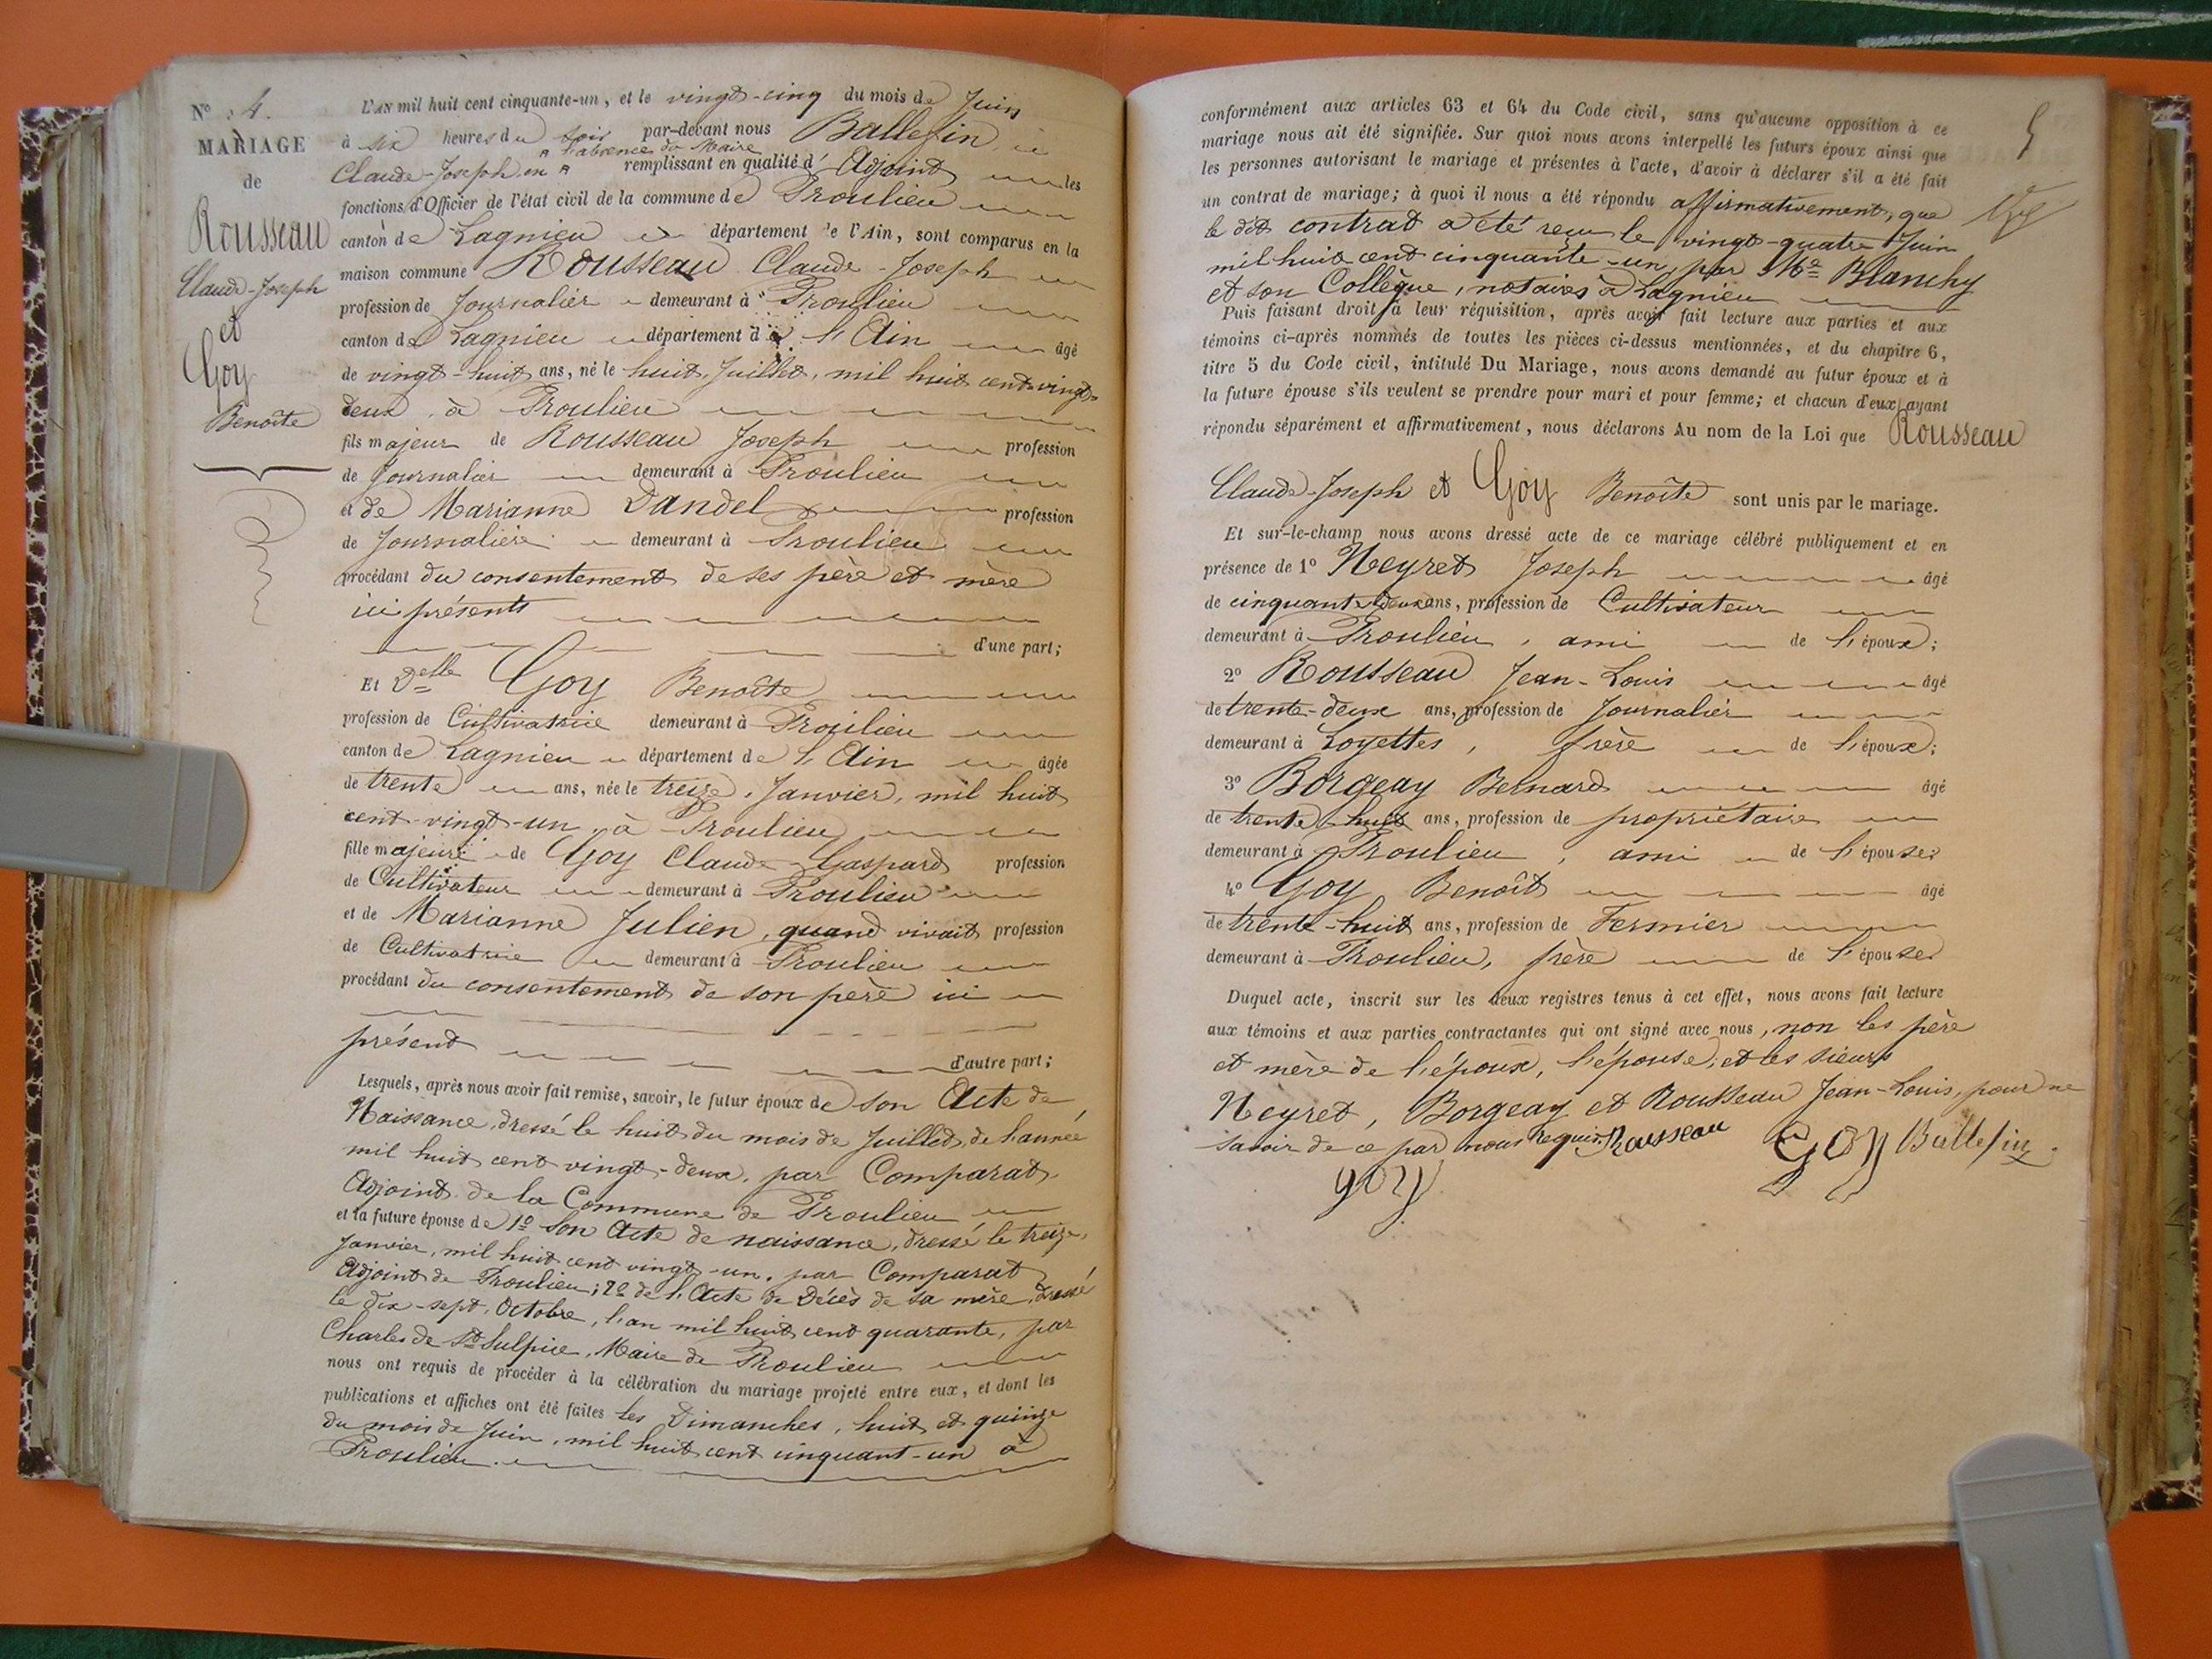 N° 4.
MARIAGE
de
Rousseau
Claude-Joseph
et
Goy
Benoîte
L'AN mil huit cent cinquante-un, et le vingt-cinq du mois de Juin
à six heures du soir par-devant nous Ballefin
l'absence du Maire
Claude-Joseph en remplissant en qualité d'Adjoint les
fonctions d'Officier de l'état civil de la commune de Proulieu
canton de Lagnieu département de l'Ain, sont comparus en la
maison commune Rousseau Claude-Joseph
profession de Journalier demeurant à Proulieu
canton de Lagnieu département de l'Ain âgé
de vingt-huit ans, né le huit Juillet, mil huit cent vingt-
deux, à Proulieu
fils majeur de Rousseau Joseph profession
de Journalier demeurant à Proulieu
et de Marianne Dandel profession
de Journalière demeurant à Proulieu
procédant du consentement de ses père et mère
ici présents
d'une part;
Et Delle Goy Benoîte
profession de Cultivatrice demeurant à Proulieu
canton de Lagnieu département de l'Ain âgée
de trente ans, née le treize, Janvier, mil huit
cent-vingt-un, à Proulieu
fille majeure de Goy Claude-Gaspard profession
de Cultivateur demeurant à Proulieu
et de Marianne Julien, quand vivait profession
de Cultivatrice demeurant à Proulieu
procédant du consentement de son père ici
présent
d'autre part;
Lesquels, après nous avoir fait remise, savoir, le futur époux de son Acte de
Naissance, dressé le huit du mois de Juillet, de l'année
mil huit cent vingt-deux, par Comparat,
Adjoint de la Commune de Proulieu
et la future épouse de 1° Son Acte de naissance, dressé le treize,
Janvier, mil huit cent vingt-un, par Comparat
Adjoint de Proulieu; 2° de l'Acte de Décès de sa mère, dressé
le dix-sept, Octobre, l'an mil huit cent quarante, par
Charles de St Sulpice, Maire de Proulieu
nous ont requis de procéder à la célébration du mariage projeté entre eux, et dont les
publications et affiches ont été faites les Dimanches, huit et quinze
du mois de Juin, mil huit cent cinquant-un à
Proulieu.
5
conformément aux articles 63 et 64 du Code civil, sans qu'aucune opposition à ce
mariage nous ait été signifiée. Sur quoi nous avons interpellé les futurs époux ainsi que
les personnes autorisant le mariage et présentes à l'acte, d'avoir à déclarer s'il a été fait
un contrat de mariage; à quoi il nous a été répondu affirmativement, que
le dit contrat a été reçu le vingt-quatre Juin
mil huit cent cinquante-un, par Me Blanchy
et son Collègue, notaires à Lagnieu
Puis faisant droit à leur réquisition, après avoir fait lecture aux parties et aux
témoins ci-après nommés de toutes les pièces ci-dessus mentionnées, et du chapitre 6,
titre 5 du Code civil, intitulé Du Mariage, nous avons demandé au futur époux et à
la future épouse s'ils veulent se prendre pour mari et pour femme; et chacun d'eux ayant
répondu séparément et affirmativement, nous déclarons Au nom de la Loi que Rousseau
Claude-Joseph et Goy Benoîte sont unis par le mariage.
Et sur-le-champ nous avons dressé acte de ce mariage célébré publiquement et en
présence de 1° Neyret Joseph âgé
de cinquante-deux ans, profession de Cultivateur
demeurant à Proulieu, ami de l'époux;
2° Rousseau Jean-Louis âgé
de trente-deux ans, profession de Journalier
demeurant à Loyettes, frère de l'époux;
3° Borgeay Bernard âgé
de trente-huit ans, profession de propriétaire
demeurant à Proulieu, ami de l'épouse
4° Goy Benoît âgé
de trente-huit ans, profession de Fermier
demeurant à Proulieu, frère de l'épouse
Duquel acte, inscrit sur les deux registres tenus à cet effet, nous avons fait lecture
aux témoins et aux parties contractantes qui ont signé avec nous, non les père
et mère de l'époux, l'épouse, et les sieurs
Neyret, Borgeay et Rousseau Jean-Louis, pour ne
savoir de ce par nous requis. Rousseau GOY Ballefin
goy